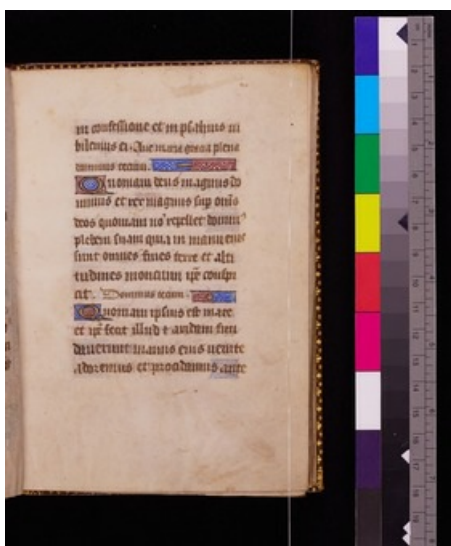 in confessione et in psalmis iu
bilemus ei. Aue maria gracia plena
dominus tecum.
Quoniam deus magnus do
minus et rex magnus sup om̅s
deos quoniam no̅ repellet domin᷒
plebem suam quia in manu eius
sunt omnes fines terre et alti
tudines moncium ip̅e conspi
cit. Dominus tecum.
Quoniam ipsius est mare
et ip̅e fecit illud et aridam fun
dauerunt manus eius uenite
adoremus et procidamus ante